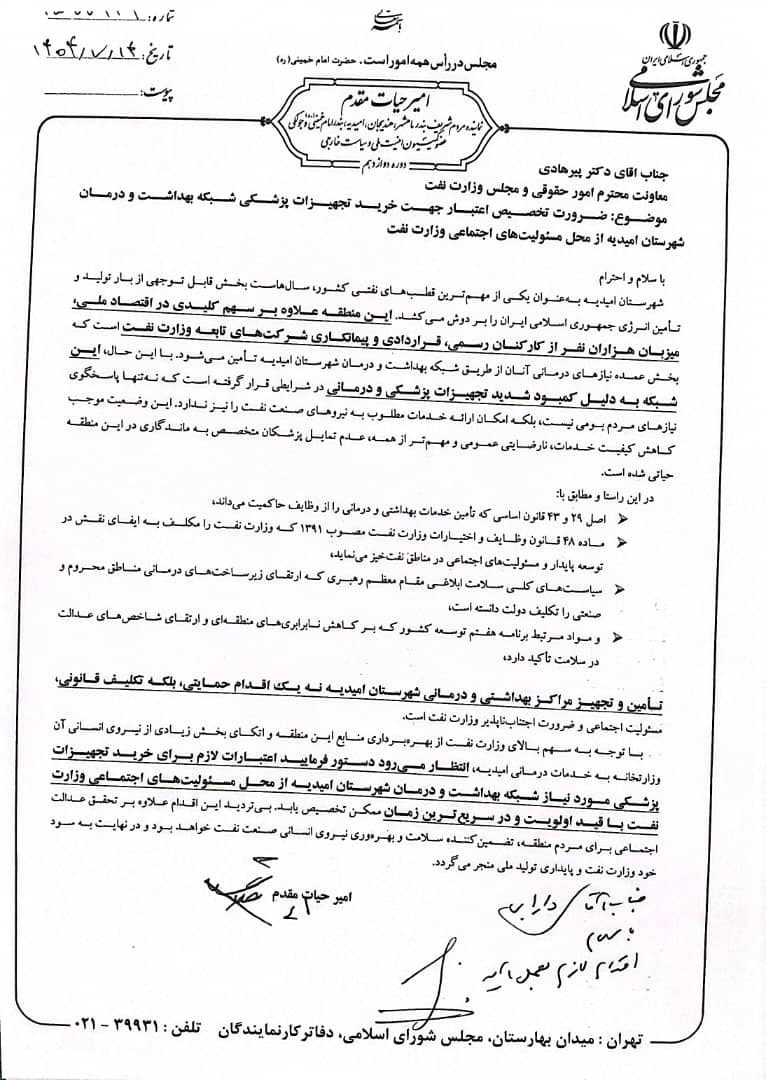 جمهوری اسلامی ایران
مجلس شورای اسلامی
مجلس در رأس همه امور است. حضرت امام خمینی (ره)
امیر حیات مقدم
نماینده مردم شریف بندر ماهشهر، هندیجان، امیدیه، بندر امام خمینی(ره) و جولکی
عضو کمیسیون امنیت ملی و سیاست خارجی
دوره دوازدهم
شماره:
تاریخ: ۱۴۰۴/۷/۱۴
پیوست:
جناب آقای دکتر پیرهادی
معاونت محترم امور حقوقی و مجلس وزارت نفت
موضوع: ضرورت تخصیص اعتبار جهت خرید تجهیزات پزشکی شبکه بهداشت و درمان
شهرستان امیدیه از محل مسئولیت‌های اجتماعی وزارت نفت
با سلام و احترام
شهرستان امیدیه به‌عنوان یکی از مهم‌ترین قطب‌های نفتی کشور، سال‌هاست بخش قابل توجهی از بار تولید و
تأمین انرژی جمهوری اسلامی ایران را بر دوش می‌کشد. این منطقه علاوه بر سهم کلیدی در اقتصاد ملی،
میزبان هزاران نفر از کارکنان رسمی، قراردادی و پیمانکاری شرکت‌های تابعه وزارت نفت است که
بخش عمده نیازهای درمانی آنان از طریق شبکه بهداشت و درمان شهرستان امیدیه تأمین می‌شود. با این حال، این
شبکه به دلیل کمبود شدید تجهیزات پزشکی و درمانی در شرایطی قرار گرفته است که نه‌تنها پاسخگوی
نیازهای مردم بومی نیست، بلکه امکان ارائه خدمات مطلوب به نیروهای صنعت نفت را نیز ندارد. این وضعیت موجب
کاهش کیفیت خدمات، نارضایتی عمومی و مهم‌تر از همه، عدم تمایل پزشکان متخصص به ماندگاری در این منطقه
حیاتی شده است.
در این راستا و مطابق با:
➢ اصل ۲۹ و ۴۳ قانون اساسی که تأمین خدمات بهداشتی و درمانی را از وظایف حاکمیت می‌داند،
➢ ماده ۴۸ قانون وظایف و اختیارات وزارت نفت مصوب ۱۳۹۱ که وزارت نفت را مکلف به ایفای نقش در
توسعه پایدار و مسئولیت‌های اجتماعی در مناطق نفت‌خیز می‌نماید،
➢ سیاست‌های کلی سلامت ابلاغی مقام معظم رهبری که ارتقای زیرساخت‌های درمانی مناطق محروم و
صنعتی را تکلیف دولت دانسته است،
➢ و مواد مرتبط برنامه هفتم توسعه کشور که بر کاهش نابرابری‌های منطقه‌ای و ارتقای شاخص‌های عدالت
در سلامت تأکید دارد،
تأمین و تجهیز مراکز بهداشتی و درمانی شهرستان امیدیه نه یک اقدام حمایتی، بلکه تکلیف قانونی،
مسئولیت اجتماعی و ضرورت اجتناب‌ناپذیر وزارت نفت است.
با توجه به سهم بالای وزارت نفت از بهره‌برداری منابع این منطقه و اتکای بخش زیادی از نیروی انسانی آن
وزارتخانه به خدمات درمانی امیدیه، انتظار می‌رود دستور فرمایید اعتبارات لازم برای خرید تجهیزات
پزشکی مورد نیاز شبکه بهداشت و درمان شهرستان امیدیه از محل مسئولیت‌های اجتماعی وزارت
نفت با قید اولویت و در سریع‌ترین زمان ممکن تخصیص یابد. بی‌تردید این اقدام علاوه بر تحقق عدالت
اجتماعی برای مردم منطقه، تضمین‌کننده سلامت و بهره‌وری نیروی انسانی صنعت نفت خواهد بود و در نهایت به سود
خود وزارت نفت و پایداری تولید ملی منجر می‌گردد.
امیر حیات مقدم
جناب آقای دارابی
با سلام
اقدام لازم بعمل آید
تهران : میدان بهارستان، مجلس شورای اسلامی، دفاتر کار نمایندگان تلفن : ۳۹۹۳۱ - ۰۲۱